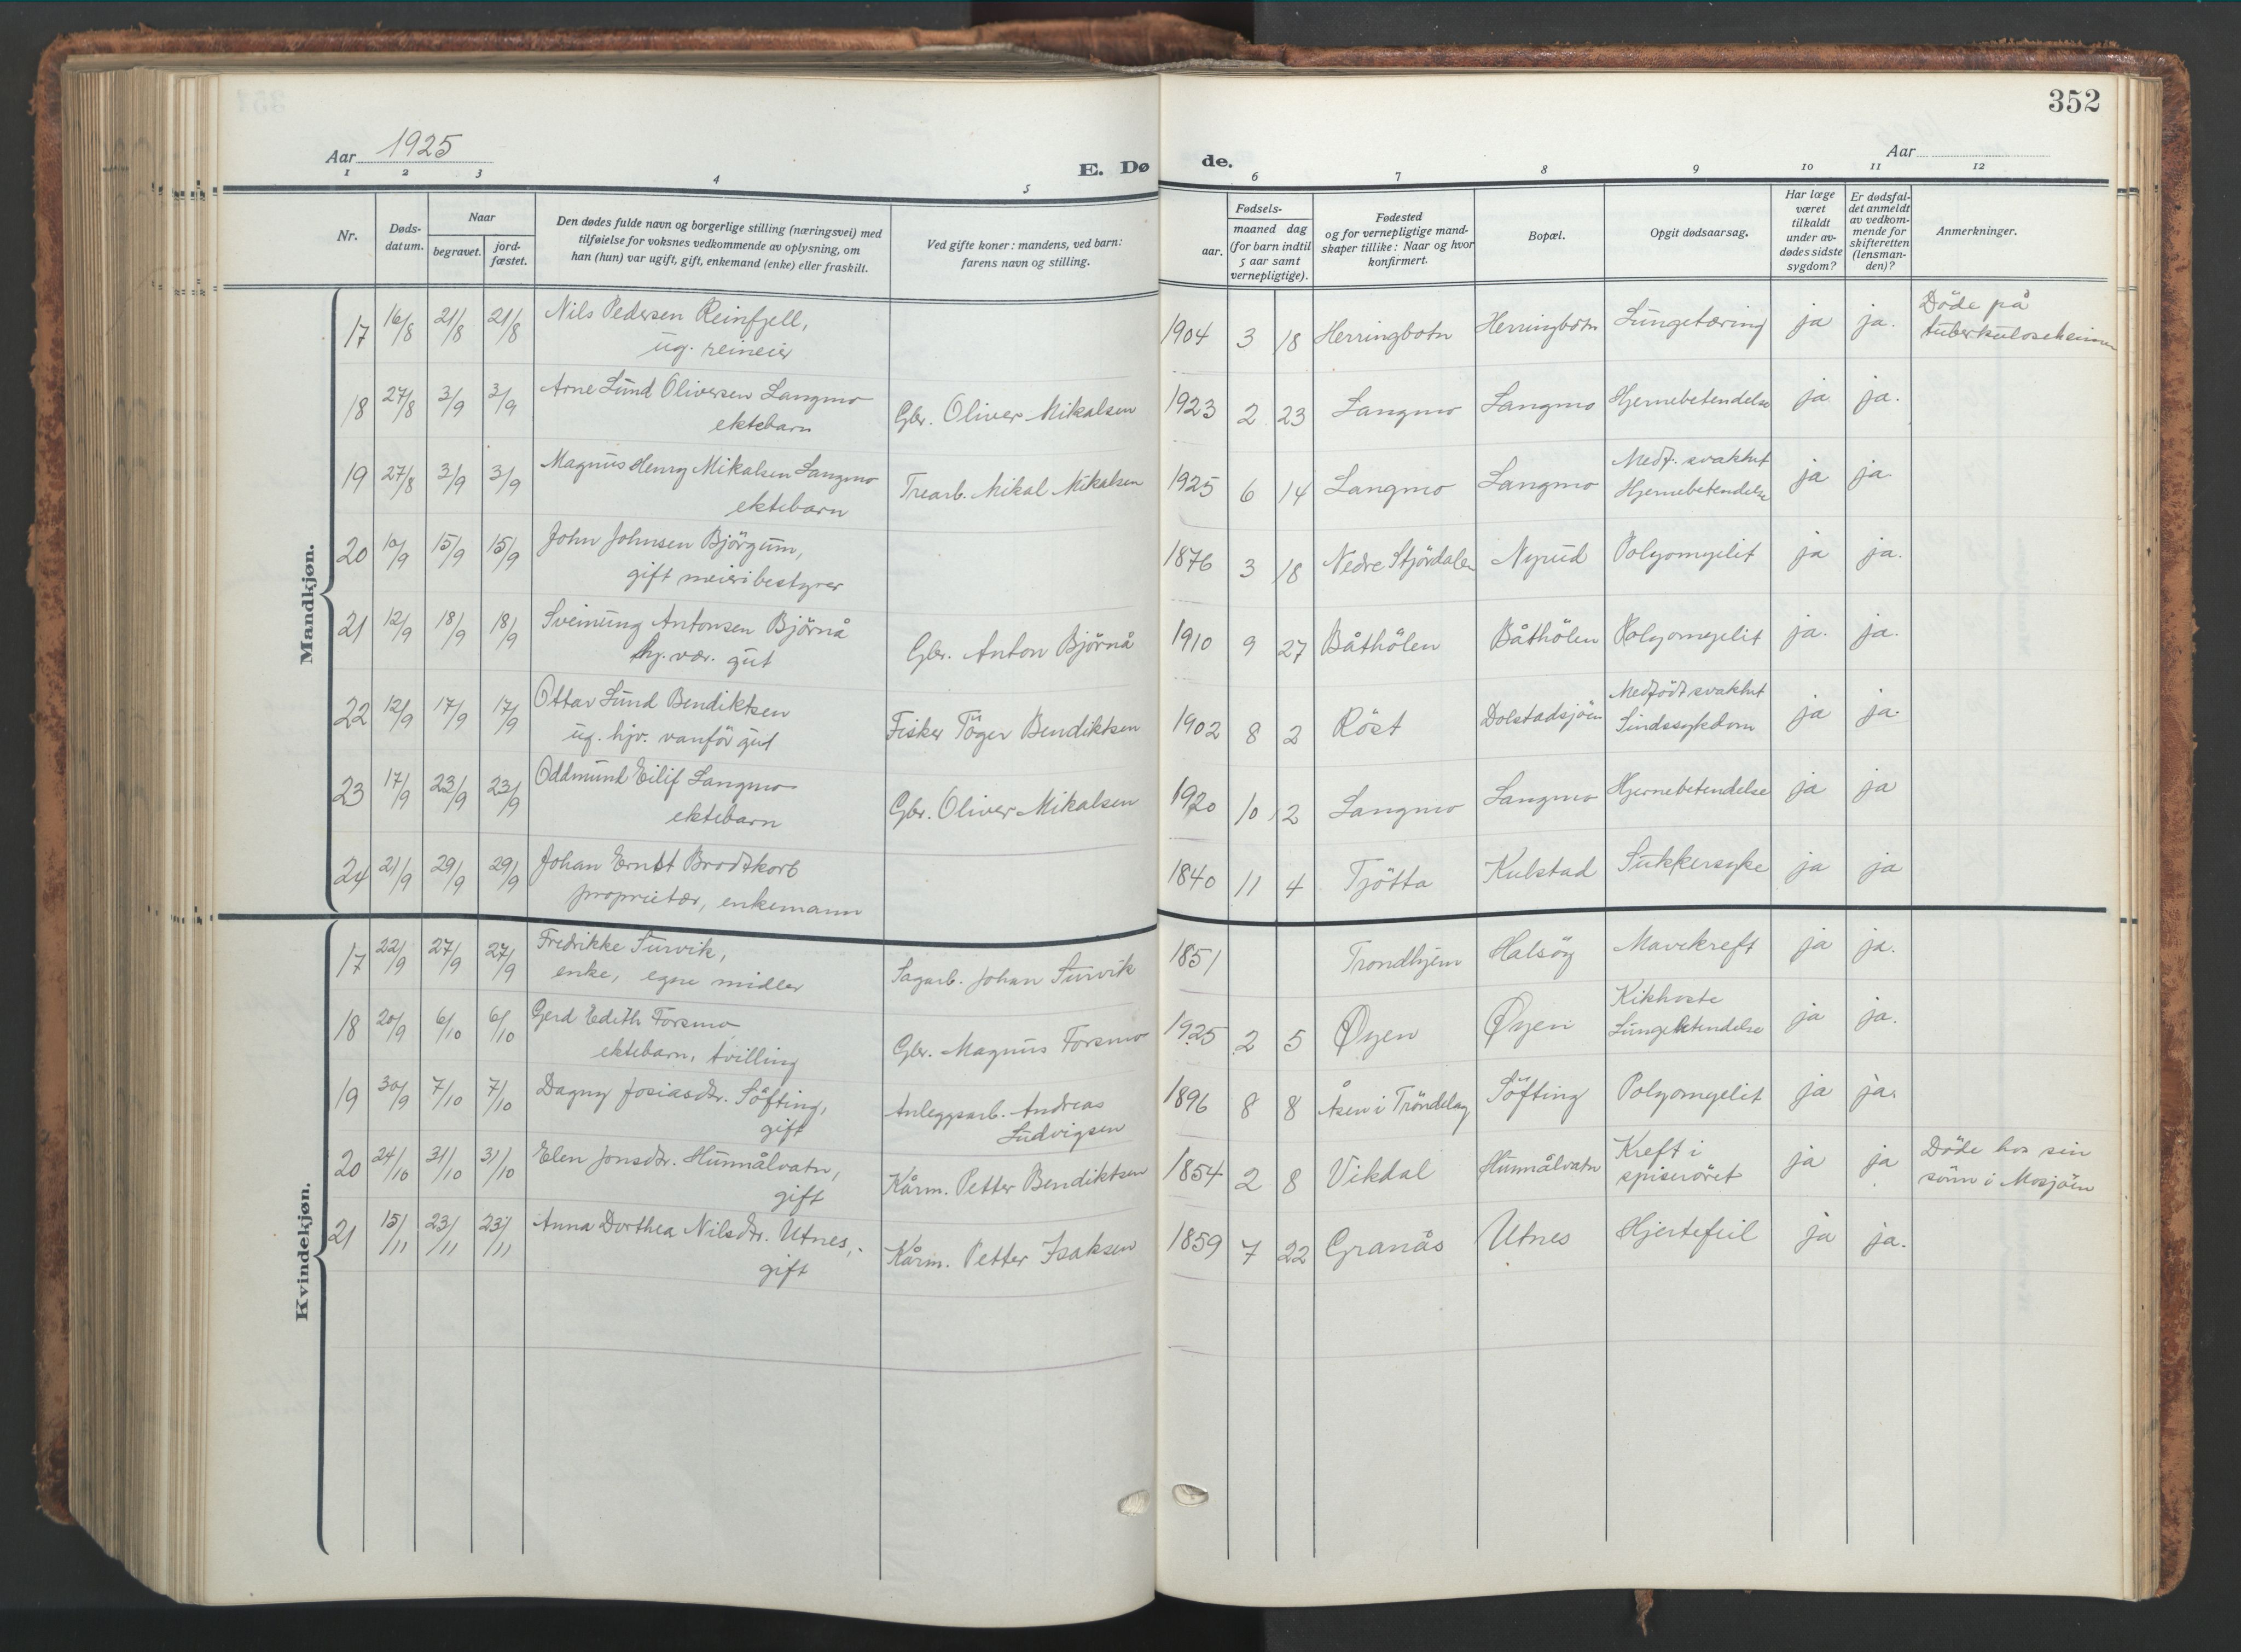 352
Aar 1925
E. Døde.
Aar
1 2 3 4 5 6 7 8 9 10 11 12
Nr.
Døds-datum.
Naar
begravet.
jord-fæstet.
Den dødes fulde navn og borgerlige stilling (næringsvei) med
tilføielse for voksnes vedkommende av oplysning, om
han (hun) var ugift, gift, enkemand (enke) eller fraskilt.
Ved gifte koner: mandens, ved barn:
farens navn og stilling.
Fødsels-
aar.
maaned dag
(for barn indtil
5 aar samt
vernepligtige).
Fødested
og for vernepligtige mand-
skaper tillike: Naar og hvor
konfirmert.
Bopæl.
Opgit dødsaarsag.
Har læge
været
tilkaldt
under av-
dødes sidste
sygdom?
Er dødsfal-
det anmeldt
av vedkom-
mende for
skifteretten
(lensman-
den)?
Anmerkninger.
Mandkjøn.
17 16/8 21/8 21/8 Nils Pedersen Reinfjell, 1904 3 18 Herringbotn Herringbotn Lungetæring ja ja. Döde på
ug. reineier tuberkuloseheimen
18 27/8 3/9 3/9 Arne Lund Oliversen Langmo Gbr. Oliver Mikalsen 1923 2 23 Langmo Langmo Hjernebetendelse ja ja.
ektebarn
19 27/8 3/9 3/9 Magnus Henry Mikalsen Langmo Trearb. Mikal Mikalsen 1925 6 14 Langmo Langmo Medf. svakhet ja ja
ektebarn Hjernebetendelse
20 10/9 15/9 15/9 John Johnsen Björgum, 1876 3 18 Nedre Stjördalen Nyrud Polyomyelit ja ja.
gift meieribestyrer
21 12/9 18/9 18/9 Sveinung Antonsen Björnå Gbr. Anton Björnå 1910 9 27 Båthölen Båthölen Polyomyelit ja. ja.
hj. vær. gut
22 12/9 17/9 17/9 Ottar Lund Bendiktsen Fisker Töger Bendiktsen 1902 8 2 Röst Dolstadsjöen Medfödt svakhet ja ja.
ug. hjv. vanför gut Sindssykdom
23 17/9 23/9 23/9 Oddmund Eilif Langmo Gbr. Oliver Mikalsen 1920 10 12 Langmo Langmo Hjernebetendelse ja ja
ektebarn
24 21/9 29/9 29/9 Johan Ernst Brodtkorb 1840 11 4 Tjötta Kulstad Sukkersyke ja ja
proprietær, enkemann
Kvindekjøn.
17 22/9 27/9 27/9 Fredrikke Turvik, Sagarb. Johan Turvik 1851 Trondhjem Halsöy Mavekreft ja ja.
enke, egne midler
18 20/9 6/10 6/10 Gerd Edith Forsmo Gbr. Magnus Forsmo 1925 2 5 Øyen Øyen Kikhoste ja ja.
ektebarn, tvilling Lungebetendelse
19 30/9 7/10 7/10 Dagny Josiasdr. Söfting, Anleggsarb. Andreas 1896 8 8 Åsen i Tröndelag Söfting Polyomyelit ja ja.
gift Ludvigsen
20 24/10 31/10 31/10 Elen Jonsdtr. Hunnålvatn, Kårm. Petter Bendiktsen 1854 2 8 Vikdal Hunnålvatn Kreft i ja ja Döde hos sin
gift spiseröret sönn i Mosjöen
21 15/11 23/11 23/11 Anna Dorthea Nilsdtr. Utnes, Kårm. Petter Isaksen 1859 7 22 Granås Utnes Hjertefeil ja ja.
gift